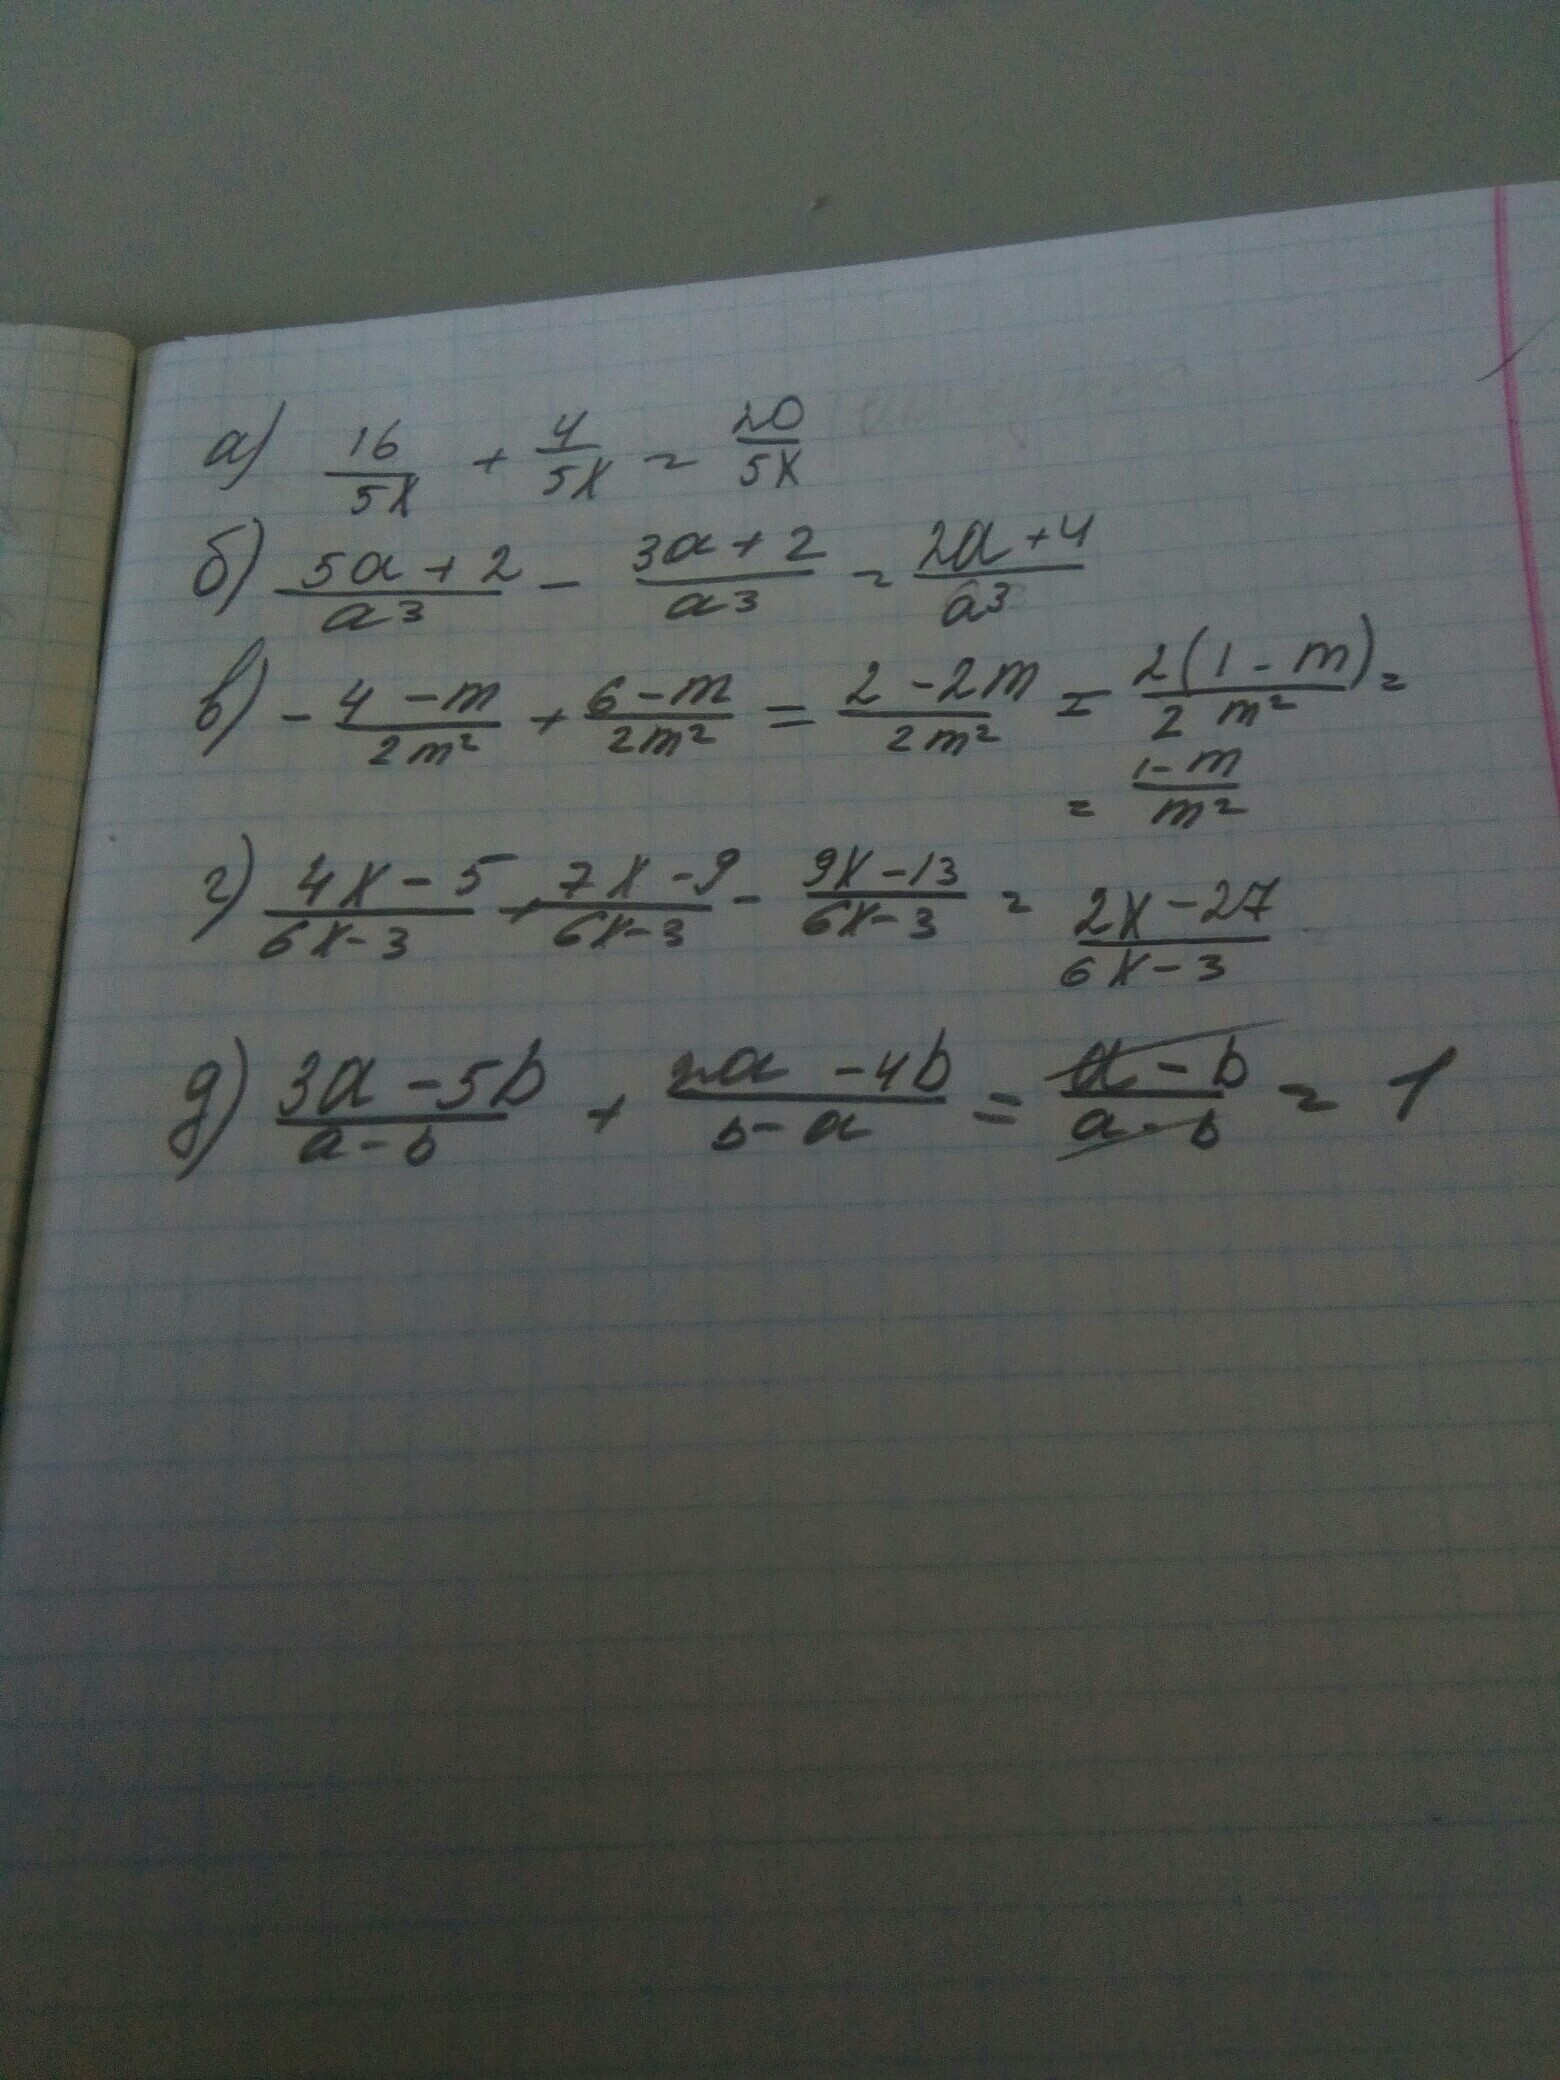 а) 16/5x + 4/5x = 20/5x
б) 5a + 2/a³ - 3a + 2/a³ = 2a + 4/a³
в) - 4 - m/2m² + 6 - m/2m² = 2 - 2m/2m² = 2(1 - m)/2 m² =
= 1 - m/m²
г) 4x - 5/6x - 3 + 7x - 9/6x - 3 - 9x - 13/6x - 3 = 2x - 27/6x - 3
д) 3a - 5b/a - b + 2a - 4b/b - a = a - b/a - b = 1